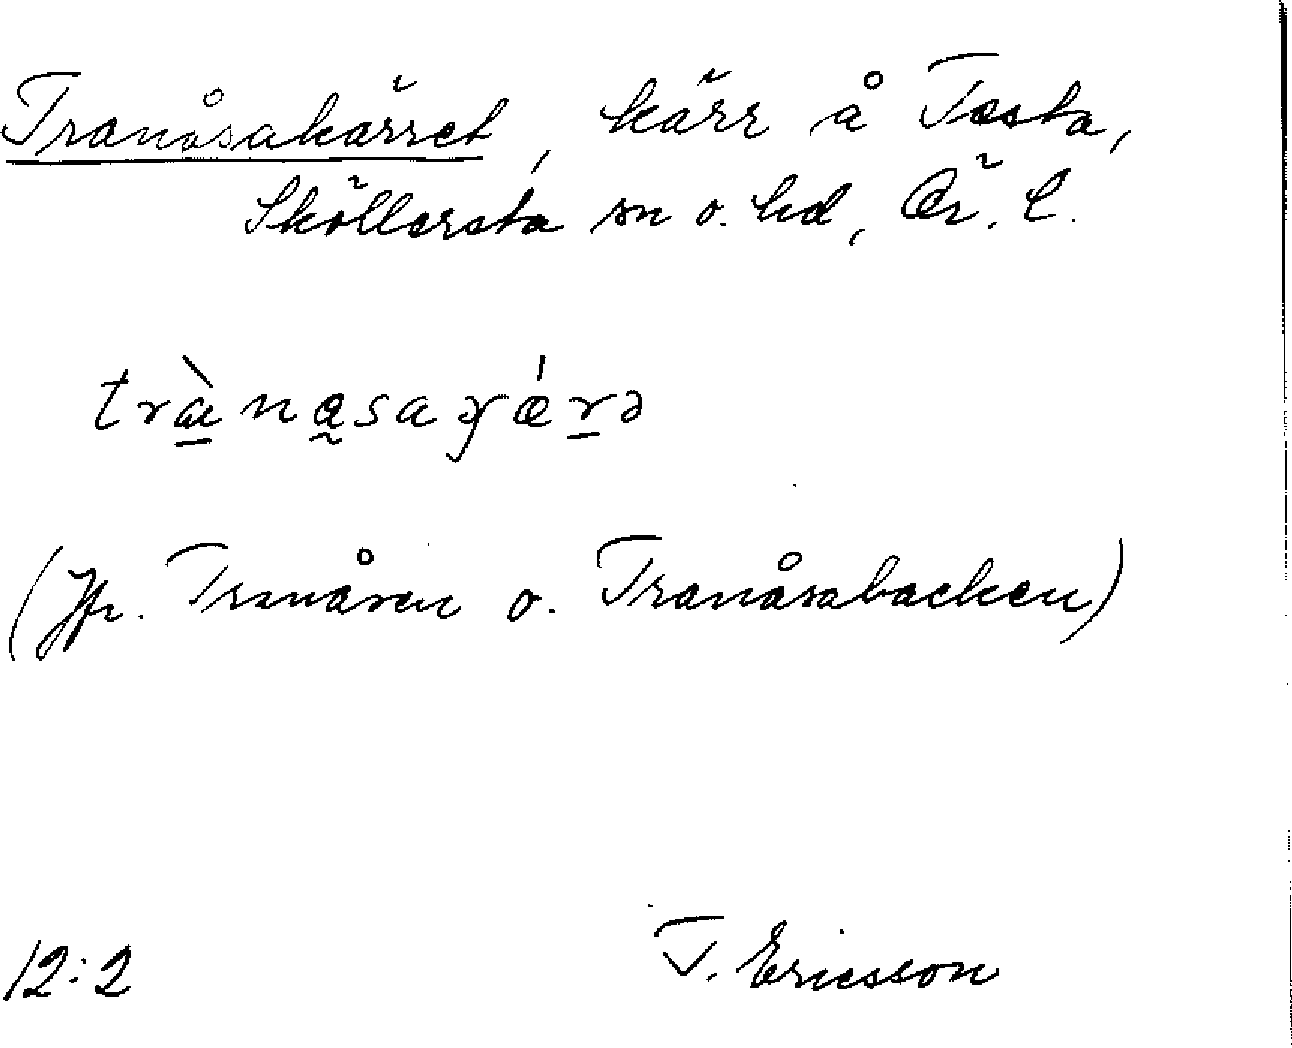 Tranåsakärret, kärr å Tosta,
Sköllersta sn o. hd, Ör. l.
trànasaɣǽrə
(Jfr. Tranåsen o. Tranåsabacken)
12:2 T. Ericsson